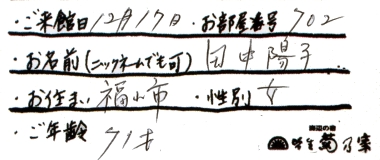 ・ご来館日 12月17日 ・お部屋番号 702
・お名前(ニックネームでも可) 田中陽子
・お住まい 福山市 ・性別 女
・ご年齢 71才
海辺の宿